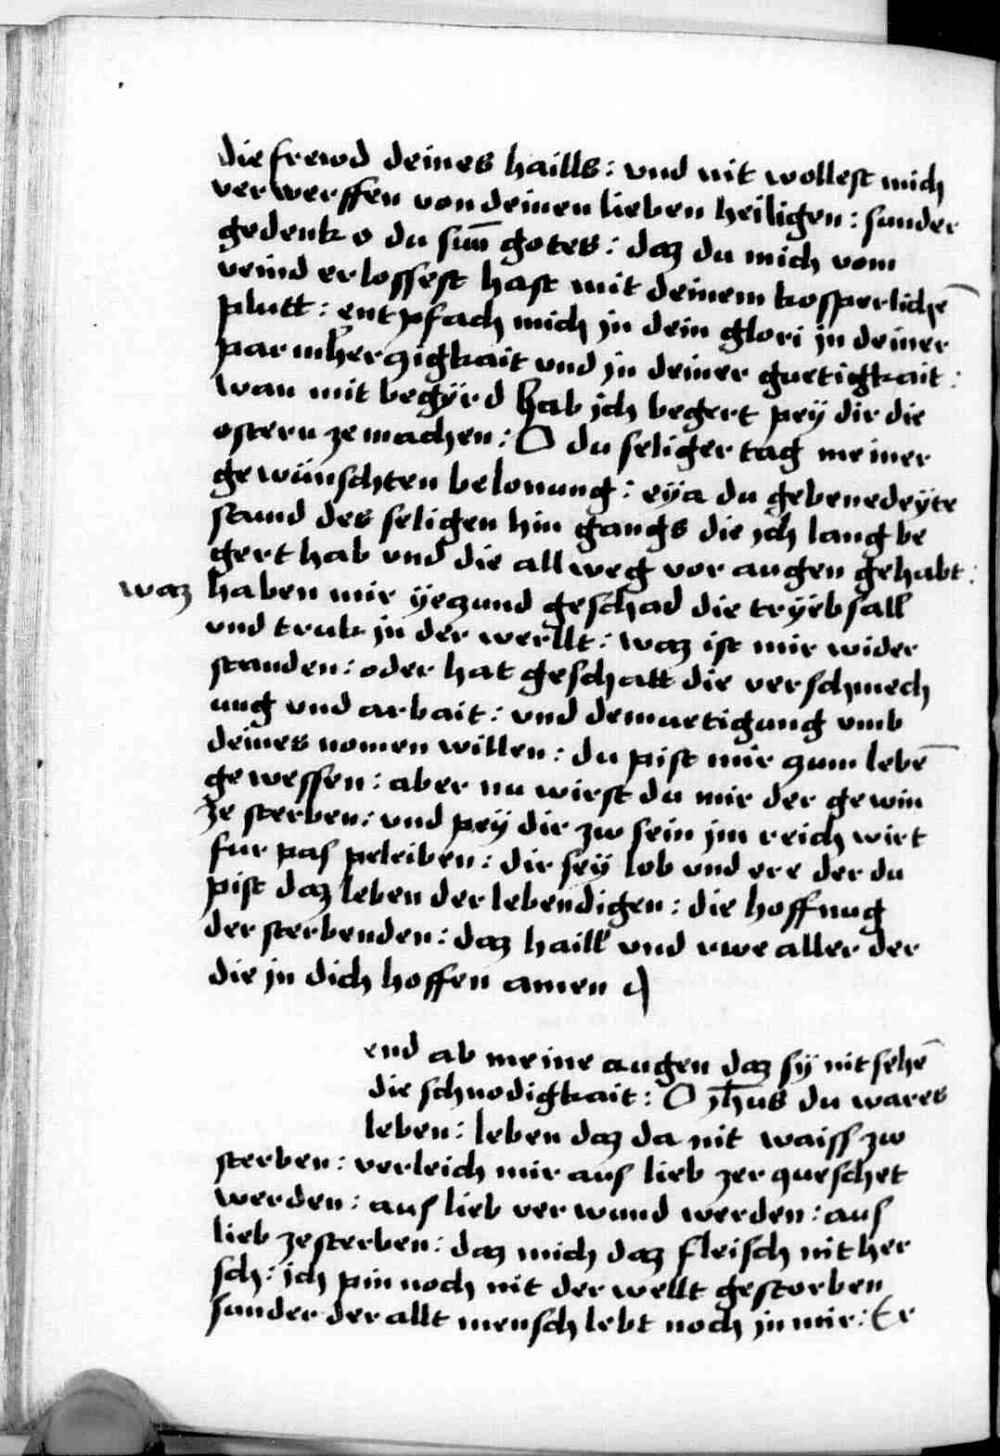 die frewd deines haills : vnd nit wollest mich
verwerffen von deinen lieben heiligen : sunder
gedenk o du sun̄ gotes : daz du mich vom
veind erlossest hast mit deinem kosperlichē
plutt : entpfach mich jn dein glori jn deiner
parmherczigkait vnd jn deiner guetigkait :
wan mit begÿrd hab jch begert peÿ dir die
ostern ze machen : O du seliger tag meiner
gewünschten belonung : eÿa du gebenedeÿte
stund des seligen hin gangs die jch lang be
gert hab vnd die allweg vor augen gehabt :
waz haben mir ÿeczund geschad die trÿebsall
vnd truk jn der werllt : waz ist mir wider
standen : oder hat geschatt die verschmech
ung vnd arbait : vnd demuetigung vmb
deines nomen willen : du pist mir czum lebē
gewessen : aber nu wirst du mir der gewin
ze sterben : vnd peÿ dir zw sein jm reich wirt
fur pas peleiben : dir seÿ lob vnd ere der du
pist daz leben der lebendigen : die hoffnug
der sterbenden : daz haill vnd rwe aller der
die jn dich hoffen amen
end ab meine augen daz sÿ nit sehē
die schnodigkait : O jħus du wares
leben : leben daz da nit waiss zw
sterben : verleich mir aus lieb zerqueschet
werden : aus lieb verwund werden : aus
lieb ze sterben : daz mich daz fleisch nit her
sch : jch pin noch nit der wellt gestorben
sunder der allt mensch lebt noch jn mir : Er